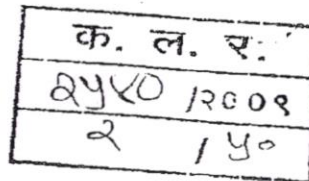 क. ल. र.
२५४० /२००९
२ / ५०